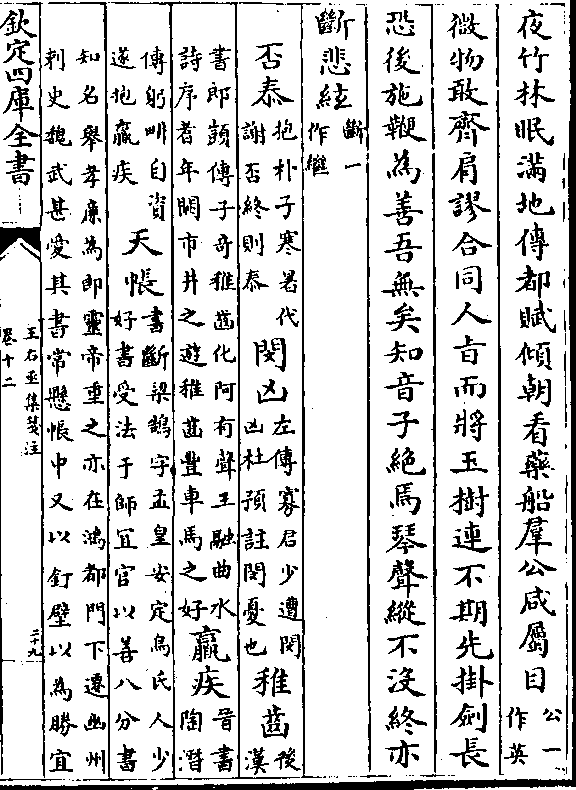 夜竹林眠滿地傳都賦傾朝看藥船羣公咸屬目公一作英
微物敢齊肩謬合同人㫖而將玉樹連不期先掛劒長
恐後施鞭為善吾無矣知音子絶焉琴聲縱不没終亦
斷悲絃斷一作繼
否泰抱朴子寒暑代謝否終則泰閔凶左傳寡君少遭閔凶杜預註閔憂也稚齒後漢
書郎顗傳子奇稚齒化阿有聲王融曲水詩序耆年闕市井之遊稚齒豐車馬之好羸疾晉書陶潛
傳躬畊自資遂抱羸疾天帳書斷梁鵠字孟皇安定烏氏人少好書受法于師宜官以善八分書
知名舉孝廉為郎靈帝重之亦在鴻都門下遷幽州刺史魏武甚愛其書常懸帳中又以釘壁以為勝宜
欽定四庫全書
王右丞集箋注
卷十二
二十九